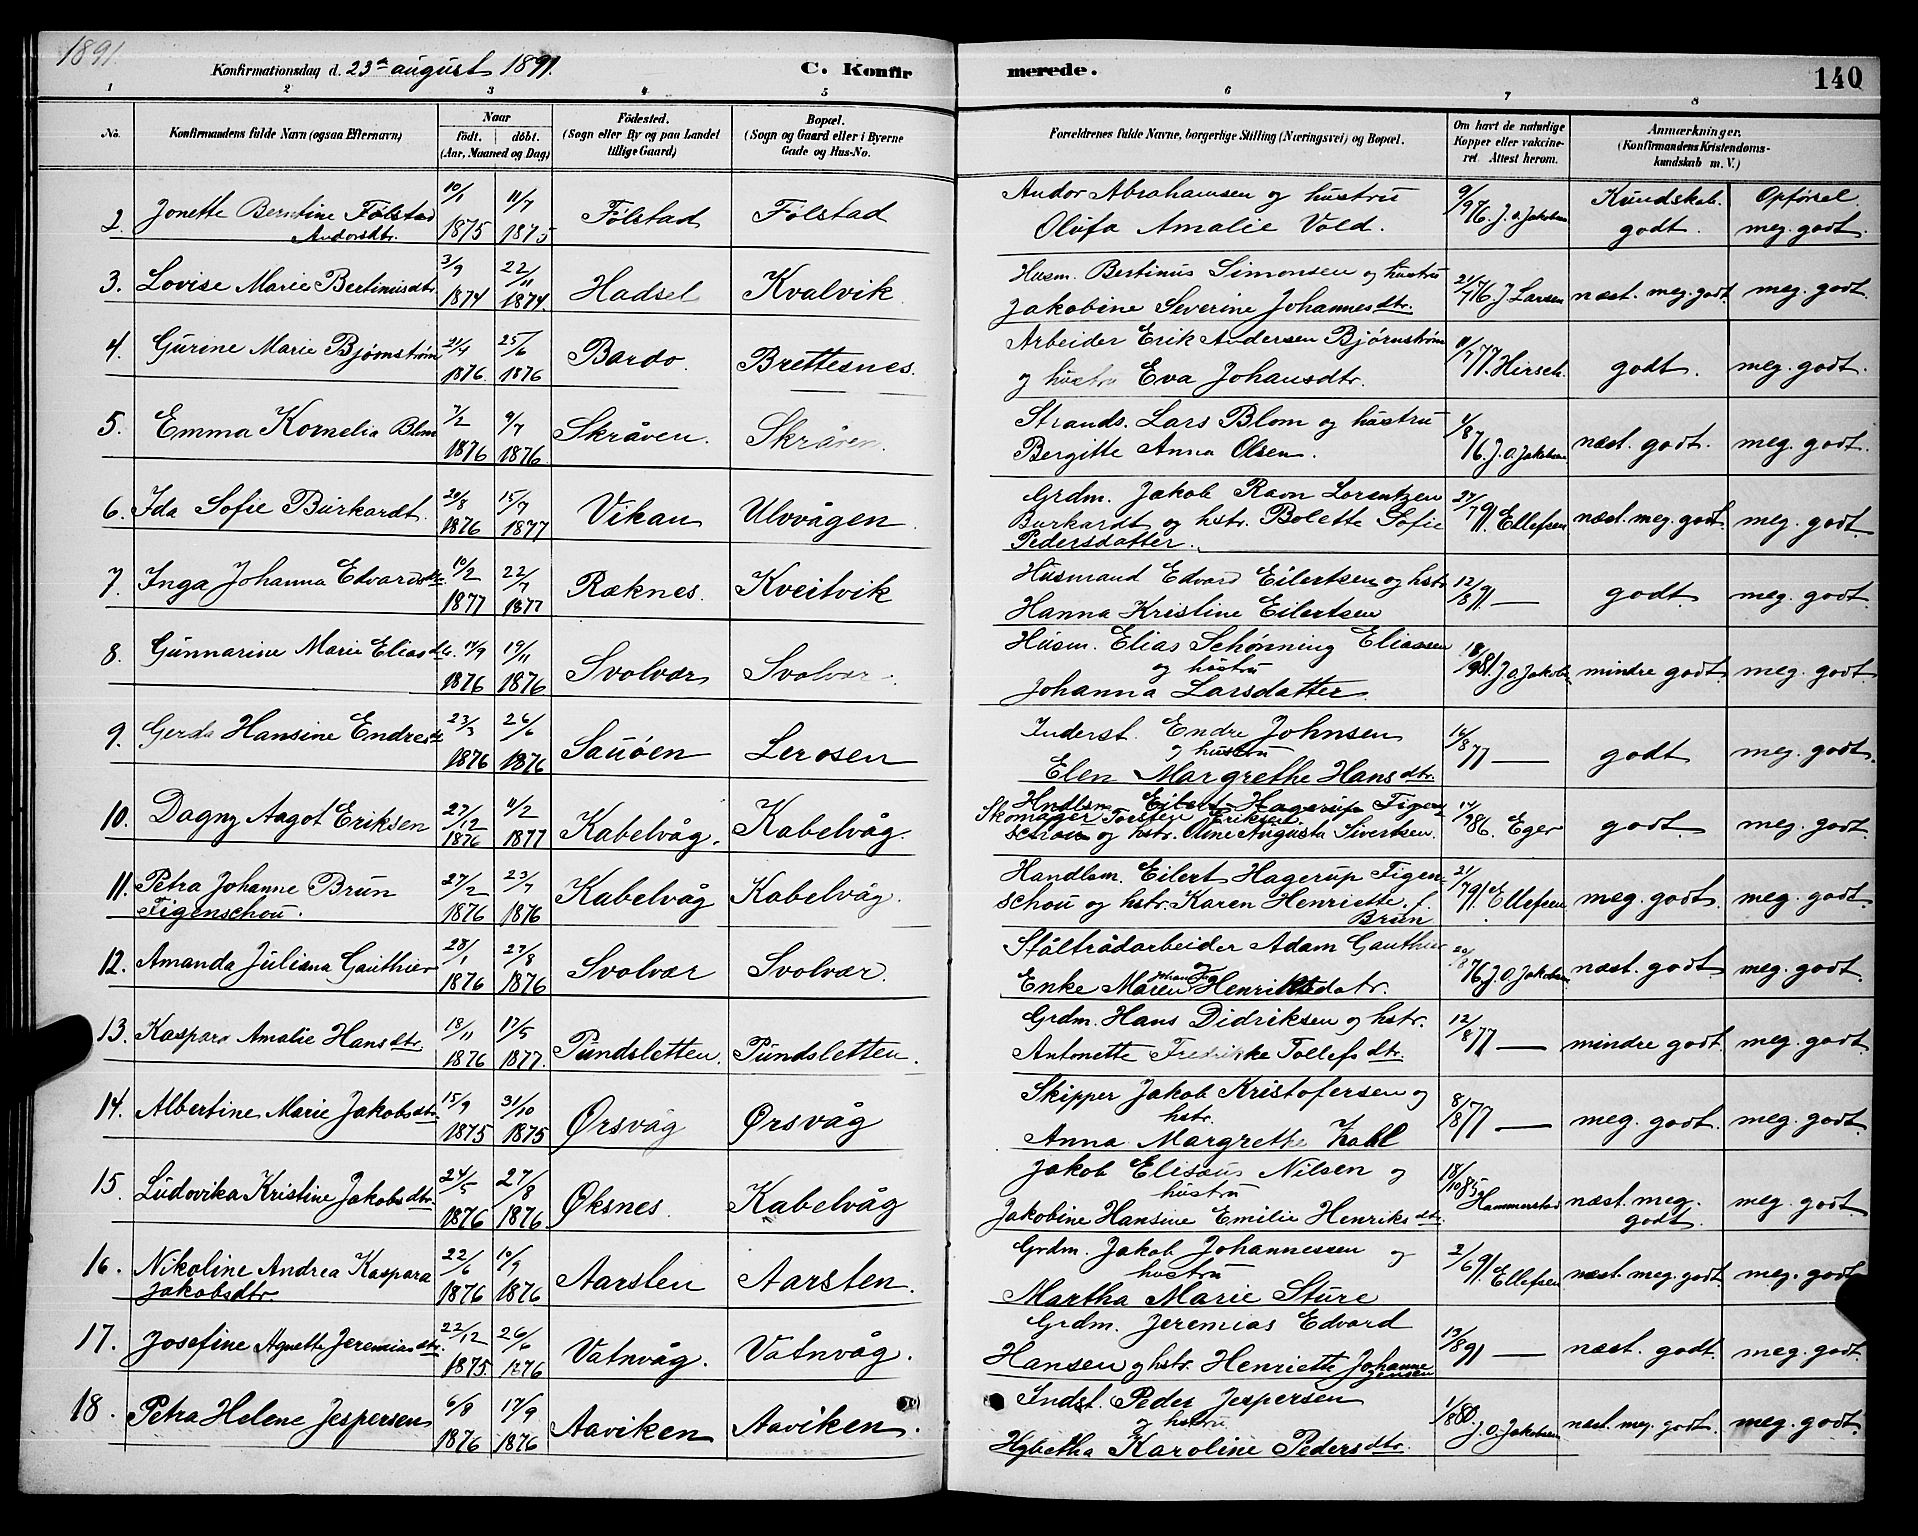 1891.
Konfirmationsdag d. 23de august 1891. C. Konfirmerede. 140
1 2 3 4 5 6 7 8
No. Konfirmandens fulde Navn (ogsaa Efternavn) Naar født. døbt. (Aar, Maaned og Dag) Fødested. (Sogn eller By og paa Landet tillige Gaard) Bopæl. (Sogn og Gaard eller i Byerne Gade og Hus-No. Forældrenes fulde Navne, borgerlige Stilling (Næringsvei) og Bopæl. Om havt de naturlige Kopper eller vakcineret. Attest herom. Anmærkninger. (Konfirmandens Kristendomskundskab m. V.)
Kundskab. Opførsel.
2. Jonette Berntine Følstad Andorsdtr. 10/1 1875 11/7 1875 Følstad Følstad Andor Abrahamsen og hustru Olufa Amalie Vold. 9/9 76. J. O. Jakobsen godt. meg. godt.
3. Lovise Marie Bertinusdtr. 3/9 1874 22/11 1874. Hadsel Kvalvik Husm. Bertinus Simonsen og hustru Jakobine Severine Johannesdtr. 21/7 76 J. Larsen næst. meg. godt. meg. godt.
4. Gurine Marie Bjørnstrøm 21/4 1876. 25/6 1876 Bardo. Brettesnes. Arbeider Erik Andersen Bjørnstrøm og hustru Eva Johansdtr. 11/7 77. Hirsch. godt. meg. godt.
5. Emma Kornelia Blom 7/2 1876 9/7 1876 Skråven. Skråven. Strands. Lars Blom og hustru Bergitte Anna Olsen. 4/8 76. J. O. Jakobsen næst. godt. meg. godt.
6. Ida Sofie Burkardt. 20/8 1876 15/7 1877 Vikan Ulvvågen. Grdm. Jakob Ravn Lorentzen Burkardt og hstr. Bolette Sofie Pedersdatter. 27/7 91. Ellefsen næst. meg. godt. meg. godt.
7. Inga Johanna Edvardsdtr. 10/2 1877 22/7 1877 Ræknes. Kveitvik Husmand Edvard Eilertsen og hstr. Hanna Kristine Eilertsen 12/8 91 — godt. meg. godt.
8. Gunnarine Marie Eliasdtr. 11/9 1876 19/11 1876 Svolvær Svolvær. Husm. Elias Schønning Eliassen og hustru Johanna Larsdatter 18/9 81. J. O. Jakobsen mindre godt. meg. godt.
9. Gerda Hansine Endresdtr. 23/3 1876 26/6 1876 Sauøen Lerosen Inderst. Endre Johnsen og hustru Elen Margrethe Hansdtr. 16/8 77 — godt meg. godt.
10. Dagny Aagot Eriksen 27/12 1876 11/2 1877 Kabelvåg. Kabelvåg. Hndlsm. Eilert Hagerup Figen- Skomager Torsten Eriksen schou og hstr. Oline Augusta Sivertsen. 14/9 86. Eger godt meg. godt.
11. Petra Johanne Brun Figenschou. 27/2 1876 23/7 1876 Kabelvåg Kabelvåg. Handlsm. Eilert Hagerup Figenschou og hstr. Karen Henriette f. Brun 21/7 91. Ellefsen meg. godt. meg. godt.
12. Amanda Juliana Gauthier 28/1 1876 27/8 1876 Svolvær Svolvær. Ståltrådarbeider Adam Gauthier og Enke Maren Johanna Henriksdatr. 20/8 76. J. O. Jakobsen næst. godt. meg. godt.
13. Kaspara Amalie Hansdtr. 18/11 1876 17/5 1877. Pundsletten. Pundsletten. Grdm. Hans Didriksen og hstr. Antonette Fredrikke Tollefsdtr. 12/8 77 — mindre godt. meg. godt.
14. Albertine Marie Jakobsdtr. 15/9 1875 31/10 1875 Ørsvåg Ørsvåg Skipper Jakob Kristofersen og hstr. Anna Margrethe Zahl 8/8 77 — meg. godt. meg. godt.
15. Ludovika Kristine Jakobsdtr. 24/5 1876 27/8 1876. Øksnes. Kabelvåg Jakob Elisæus Nilsen og hustru Jakobine Hansine Emilie Henriksdtr. 18/10 85. Hammerstad næst. meg. godt. meg. godt.
16. Nikoline Andrea Kaspara Jakobsdtr. 22/6 1876 10/9 1876. Aarsten Aarsten. Grdm. Jakob Johannessen og hustru Martha Marie Sture 2/6 91. Ellefsen næst. meg. godt. meg. godt.
17. Josefine Agnette Jeremiasdtr. 22/12 1875. 26/6 1876 Vatnvåg. Vatnvåg. Grdm. Jeremias Edvard Hansen og hstr. Henriette Johanne Jensen 13/8 91 — næst. godt. meg. godt.
18. Petra Helene Jespersen 6/8 1876 17/9 1876 Aaviken Aaviken. Indst. Peder Jespersen og hstru Karoline Pedersdtr. 1/8 80. J. O. Jakobsen næst. meg. godt. meg. godt.